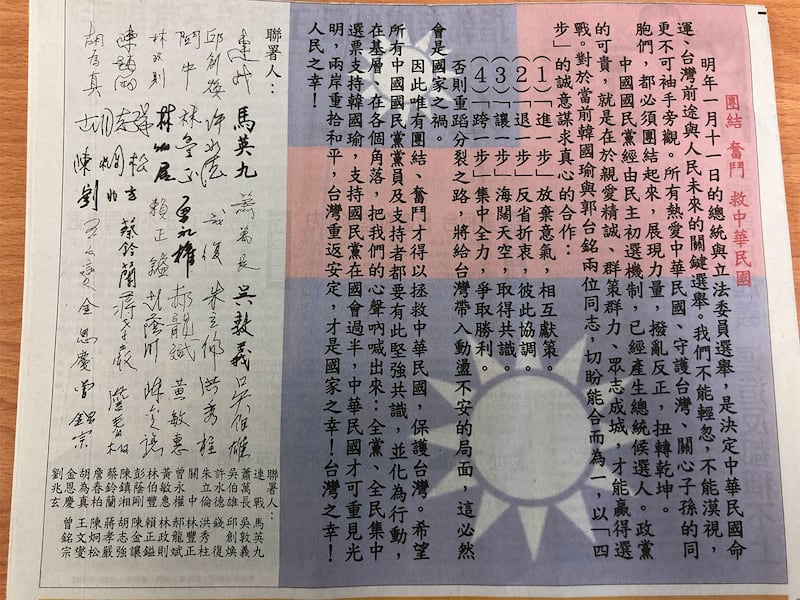 團結 奮鬥 救中華民國
明年一月十一日的總統與立法委員選舉，是決定中華民國命
運、台灣前途與人民未來的關鍵選舉。我們不能輕忽，不能漠視，
更不可袖手旁觀。所有熱愛中華民國、守護台灣、關心子孫的同
胞們，都必須團結起來，展現力量，撥亂反正，扭轉乾坤。
中國國民黨經由民主初選機制，已經產生總統候選人。政黨
的可貴，就是在於親愛精誠、群策群力、眾志成城，才能贏得選
戰。對於當前韓國瑜與郭台銘兩位同志，切盼能合而為一，以「四
步」的誠意謀求真心的合作：
（1）「進一步」放棄意氣，相互獻策。
（2）「退一步」反省折衷，彼此協調。
（3）「讓一步」海闊天空，取得共識。
（4）「跨一步」集中全力，爭取勝利。
否則重蹈分裂之路，將給台灣帶入動盪不安的局面，這必然
會是國家之禍。
因此唯有團結、奮鬥才得以拯救中華民國，保護台灣。希望
所有中國國民黨黨員及支持者都要有此堅強共識，並化為行動，
在基層、在各個角落，把我們的心聲吶喊出來：全黨、全民集中
選票支持韓國瑜，支持國民黨在國會過半，中華民國才可重見光
明，兩岸重拾和平，台灣重返安定，才是國家之幸！台灣之幸！
人民之幸！
聯署人：
連戰 馬英九 蕭萬長 吳敦義 吳伯雄
邱創煥 許水德 錢復 朱立倫 洪秀柱
關中 林豐正 曾永權 郝龍斌 黃敏惠
林政則 林伯豐 賴正鎰 彭蔭剛 陳金讓
陳鎮湘 胡志強 蔡鈴蘭 蔣孝嚴 詹春柏
胡為真 陳炯松 劉兆玄 王文燮 金恩慶 曾銘宗
聯署人：
連　戰 馬英九
蕭萬長 吳敦義
吳伯雄 邱創煥
許水德 錢　復
朱立倫 洪秀柱
關　中 林豐正
曾永權 郝龍斌
黃敏惠 林政則
林伯豐 賴正鎰
彭蔭剛 陳金讓
陳鎮湘 胡志強
蔡鈴蘭 蔣孝嚴
詹春柏 陳炯松
胡為真 王文燮
金恩慶 曾銘宗
劉兆玄